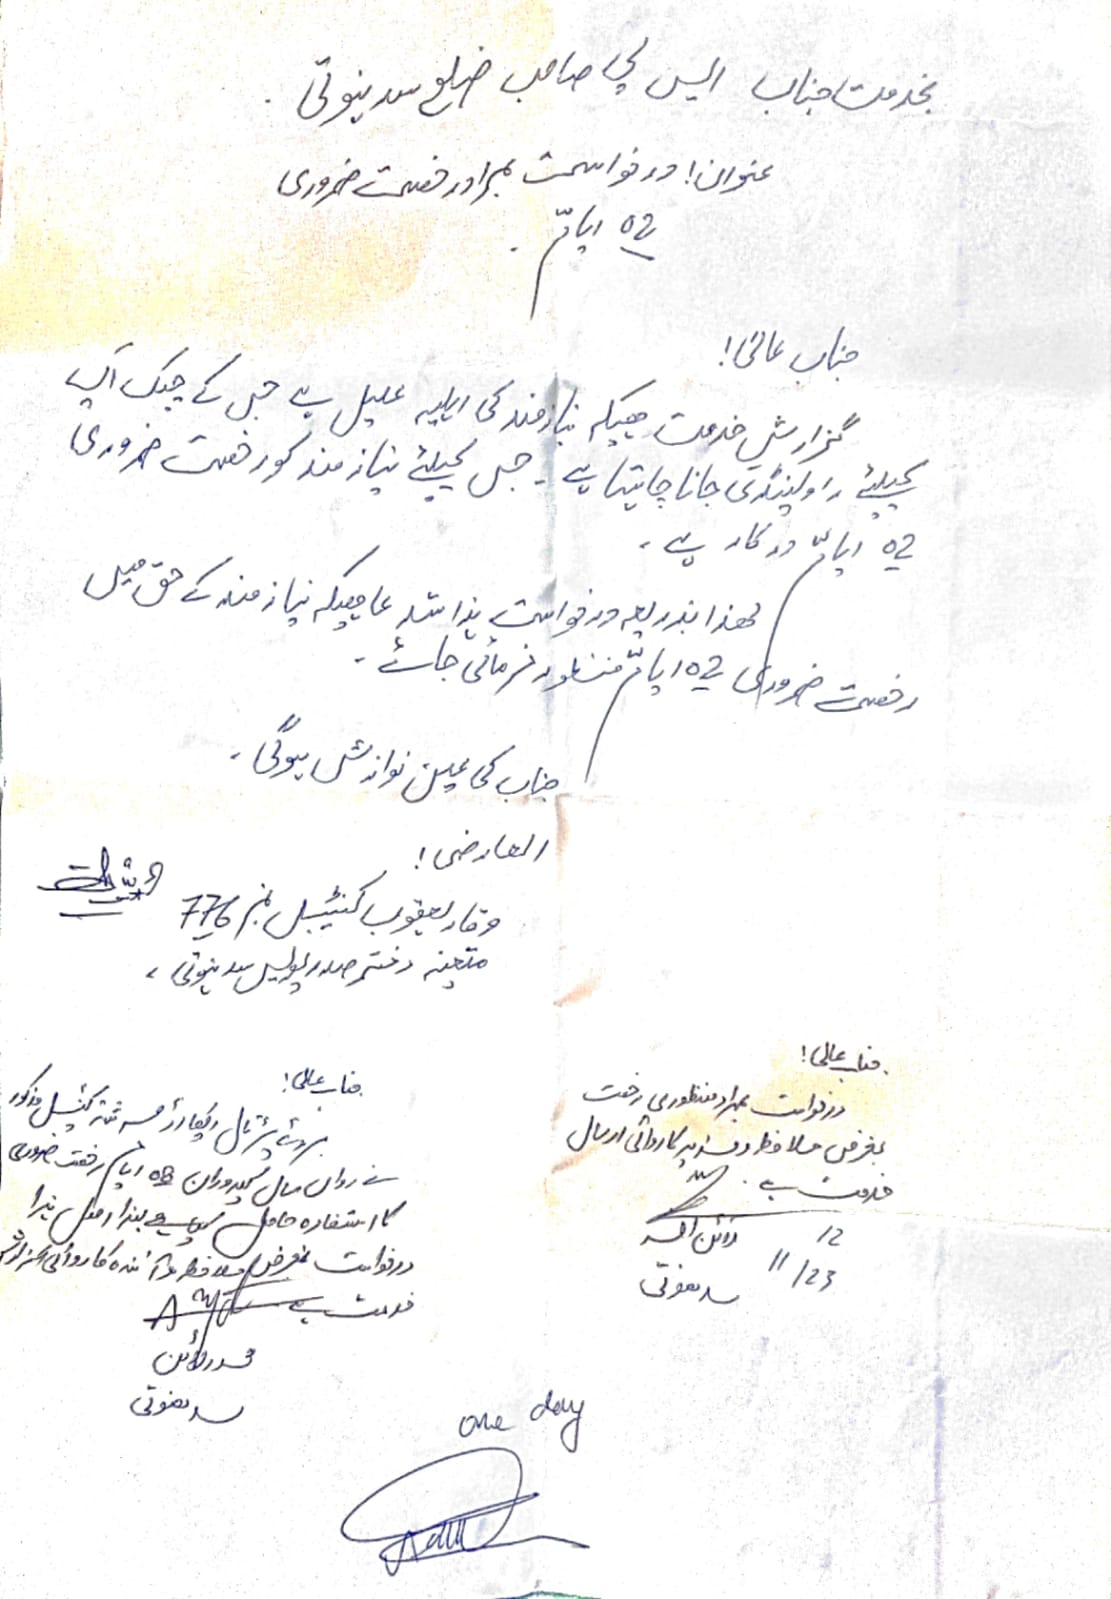 بخدمت جناب ایس پی صاحب ضلع سدہنوتی .
عنوان! درخواست بمراد رخصت ضروری
02 ایام .
جناب عالی!
گزارش خدمت ہیکہ نیازمند کی اہلیہ علیل ہے جس کے چیک اپ
کیلئے راولپنڈی جانا چاہتا ہے ۔ جس کیلئے نیازمند کو رخصت ضروری
02 ایام درکار ہے ۔
لہذا بذریعہ درخواست ہذا استدعا ہیکہ نیازمند کے حق میں
رخصت ضروری 02 ایام منظور فرمائی جائے ۔
جناب کی عین نوازش ہوگی ۔
العارض!
وقار یعقوب کنٹیبل نمبر 776
متعینہ دفتر صدر پولیس سدہنوتی ،
جناب عالی!
درخواست بمراد منظوری رخصت
بغرض ملاحظہ و مزید کاروائی ارسال
خدمت ہے .
لائن آفیسر
سدہنوتی
12
11/23
جناب عالی!
بروئے پڑتال ریکارڈ کنٹیبل مذکور
نے رواں سال کے دوران 08 ایام رخصت ضروری
کا استفادہ حاصل ہے لہذا اصل ہذا
درخواست بغرض ملاحظہ و آئندہ کاروائی
خدمت ہے
محرر لائن
سدہنوتی
one day